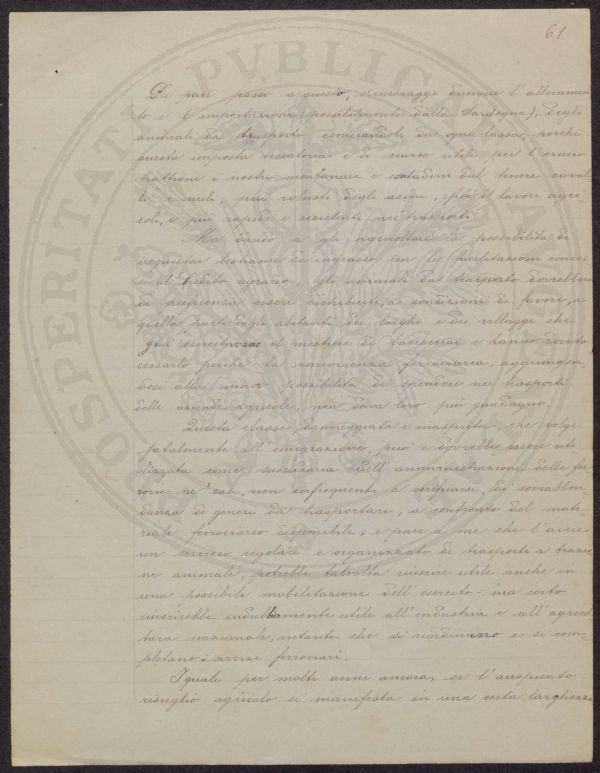 61
Di pari passo a questo, s'incoraggi ennone l'allevamen-
to e l'importazione (possibilmente dalla Sardegna), degli
animali da trasporto esonerandoli da ogni tassa, perché
questa imposta vessatoria e di scarso utile per l'erario
trattiene i nostri montanari e contadini dal tenere caval-
li e muli, più robusti degli asini, per il lavori agri-
coli, e più rapidi e resistenti nei trasporti.
Ma dando a gli agricoltori la possibilità di
acquistar bestiame da ingrasso con le facilitazioni
al Credito agrario gli animali da trasporto dovrebbero
di preferenza essere distribuiti, a condizioni di favore, a
quella parte degli abitanti dei borghi e dei villaggi che
già esercitavano il mestiere di barocciai e hanno dovuto
cessarlo perché la concorrenza ferroviaria, aggiungen-
dosi alla minor possibilità di spendere nei trasporti
delle aziende agricole, non dava loro più guadagno.
Questa classe, danneggiata e inasprita, che volge
fatalmente all'emigrazione, può e dovrebbe essere uti-
lizzata come sussidiaria dell'amministrazione delle fer-
rovie ne' casi, non infrequenti a di sovrabbon-
danza di generi da trasportare, a confronto del mate-
riale ferroviario disponibile; e pare a me che l'avere
un servizio regolare e organizzato di trasporti a trazio-
ne animale, potrebbe talvolta riuscire utile anche in
una possibile mobilitazione dell'esercito - ma certo
riuscirebbe indubbiamente utile all'industria e all'agricol-
tura nazionale, intanto che si riordinano e si com-
pletano i servizi ferroviari.
Iguali per molti anni ancora, se l'auspicato
risveglio agricolo si manifesta in una certa larghezza
PROSPERITATI PVBLICAE